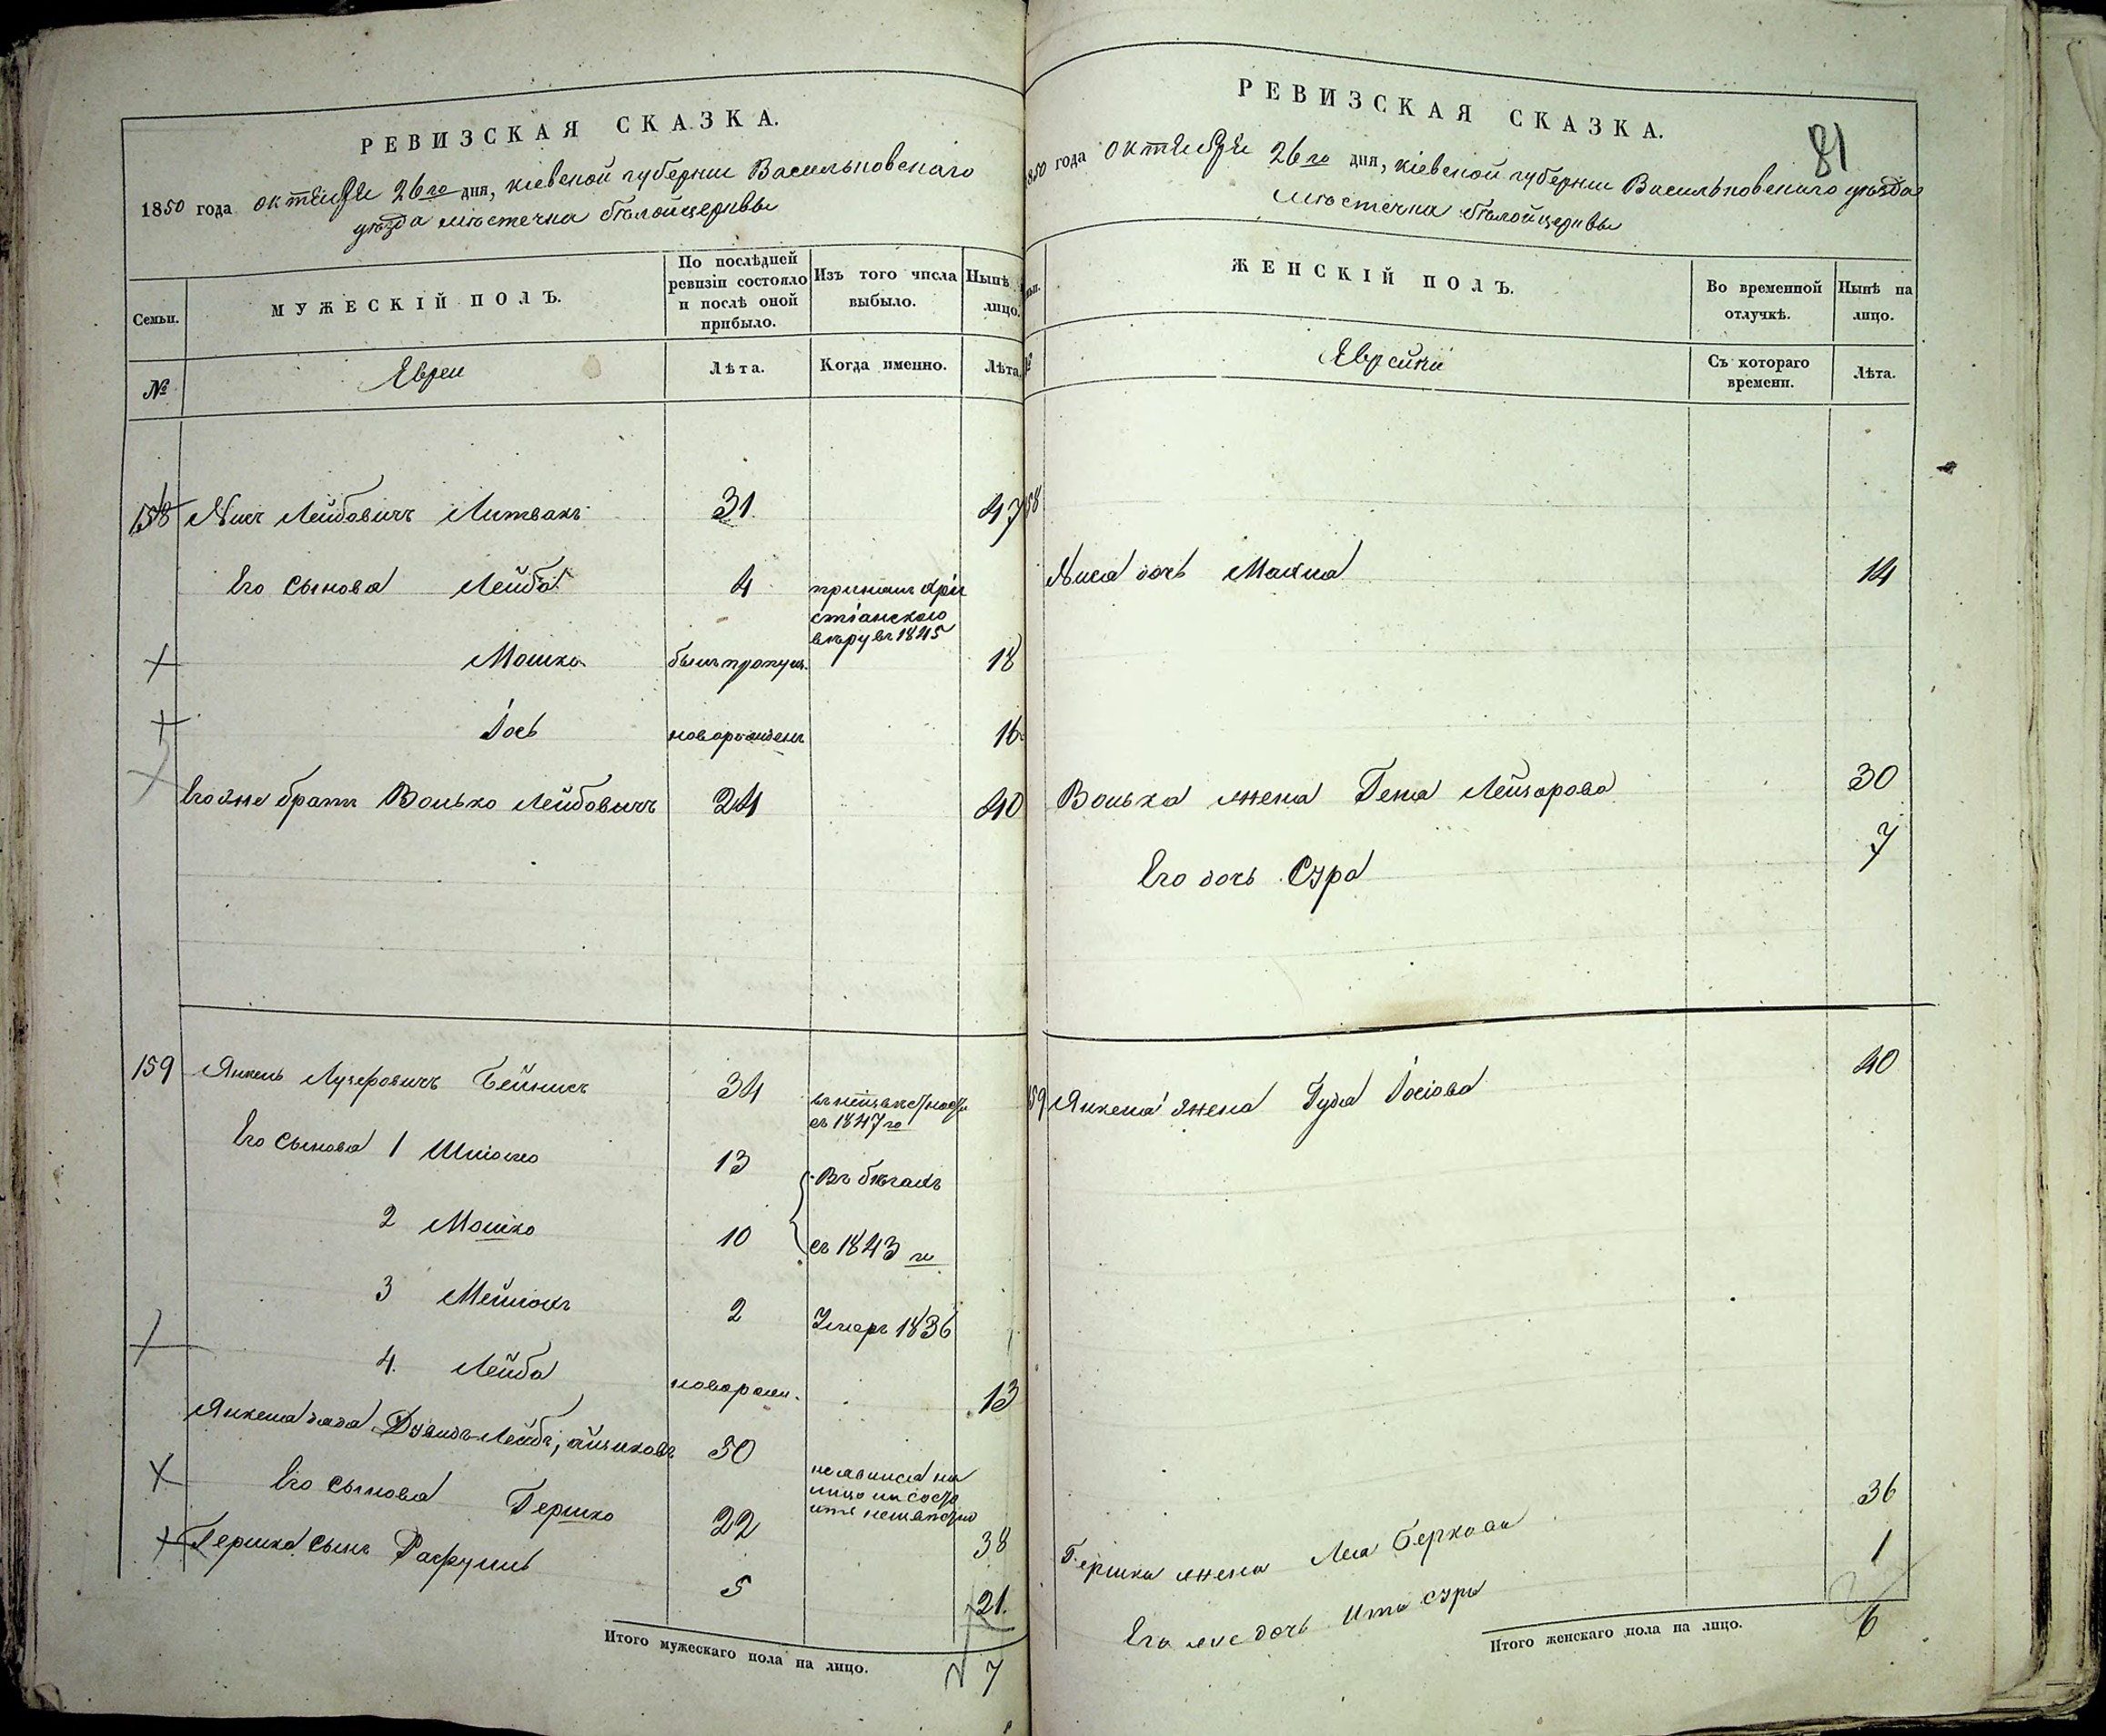 РЕВИЗСКАЯ СКАЗКА.
1850 года октября 26го дня, кіевской губерніи Васильковскаго
уѣзда мѣстечка бѣлойцеркви
Семьи.
МУЖЕСКІЙ ПОЛЪ.
По послѣдней
ревизіи состояло
и послѣ оной
прибыло.
Изъ того числа
выбыло.
Нынѣ
лицо.
№
Евреи
Лѣта.
Когда именно.
Лѣта.
158 Лейбовичъ Литвакъ 31 47
Его сынова Лейба 4 принялъ хри
стіанского
вѣру въ 1845
Мошко былъ пропущ. 18
Іось новорожденъ 16
Его же братъ Волько Лейбовичъ 24 40
159 Янкель Лузеровичъ Бейнисъ 34 въ неизвѣстности
съ 1847го
Его сынова 1 Шліомо 13 Въ бѣгахъ
2 Мошко 10 съ 1843 го
3 Мейлохъ 2 Умеръ 1836
4. Лейба новорожд. 13
Янкеля дядя Дувидъ Лейбъ, айзиковъ 50
лицо
Его сынова Гершко 22 38
Гершка сынъ Рафуиль 5 21.
Итого мужескаго пола на лицо. 7
РЕВИЗСКАЯ СКАЗКА.
81
1850 года октября 26го дня, кіевской губерніи Васильковскаго уѣзда
мѣстечка бѣлойцеркви
ЖЕНСКІЙ ПОЛЪ.
Во временной
отлучкѣ.
Нынѣ на
лицо.
Еврейки
Съ котораго
времени.
Лѣта.
58
дочь Малка 14
Волька жена Геня Лейзорова 30
Его дочь Сура 7
59 Янкеля жена Гудя Іосіова 40
Гершка жена Лея Беркова 36
Его же дочь Ита сура 1
Итого женскаго пола на лицо. 6